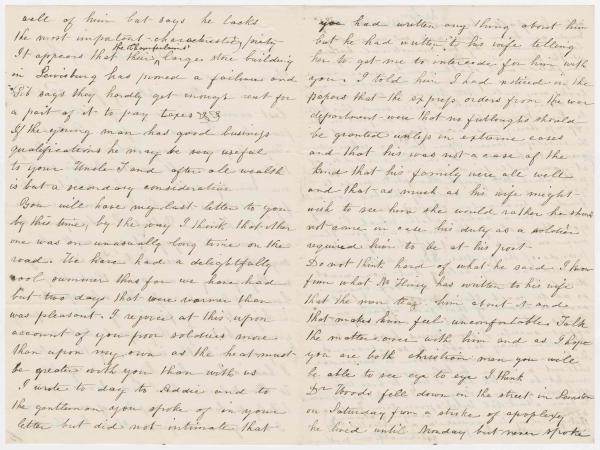 well of him but says he lacks
the most important characteristic, piety
the Chamberlains'
It appears that their large store building
in Lewisburg has proved a failure and
Sis says they hardly get enough rent for
a part of it to pay taxes
If the young man has good business
qualifications he may be very useful
to your Uncle T and after all wealth
is but a secondary consideration
You will have my last letter to you
by this time, by the way I think that other
one was an unusually long time on the
road. We have had a delightfully
cool summer thus far we have had
but two days that were warmer than
was pleasant. I rejoice at this upon
account of you poor soldiers more
than upon my own as the heat must
be greater with you than with us
I wrote to day to Addie and to
the gentleman you spoke of in your
letter but did not intimate that
you had written any thing about him
but he had written to his wife telling
her to get me to intercede for him with
you. I told him I had noticed in the
papers that the express orders from the war
department were that no furloughs should
be granted unless in extreme cases
and that his was not a case of the
kind that his family were all well
and that as much as his wife might
wish to see him she would rather he should
not come in case his duty as a soldier
required him to be at his post
Do not think hard of what he said I know
from what he has written to his wife
that the men teaze him about it and
that makes him feel uncomfortable. Talk
the matter over with him and as I hope
you are both christian men you will
be able to see eye to eye I think
Dr Woods fell down in the street in
on Saturday from a stroke of apoplexy
he lived until Monday but never spoke